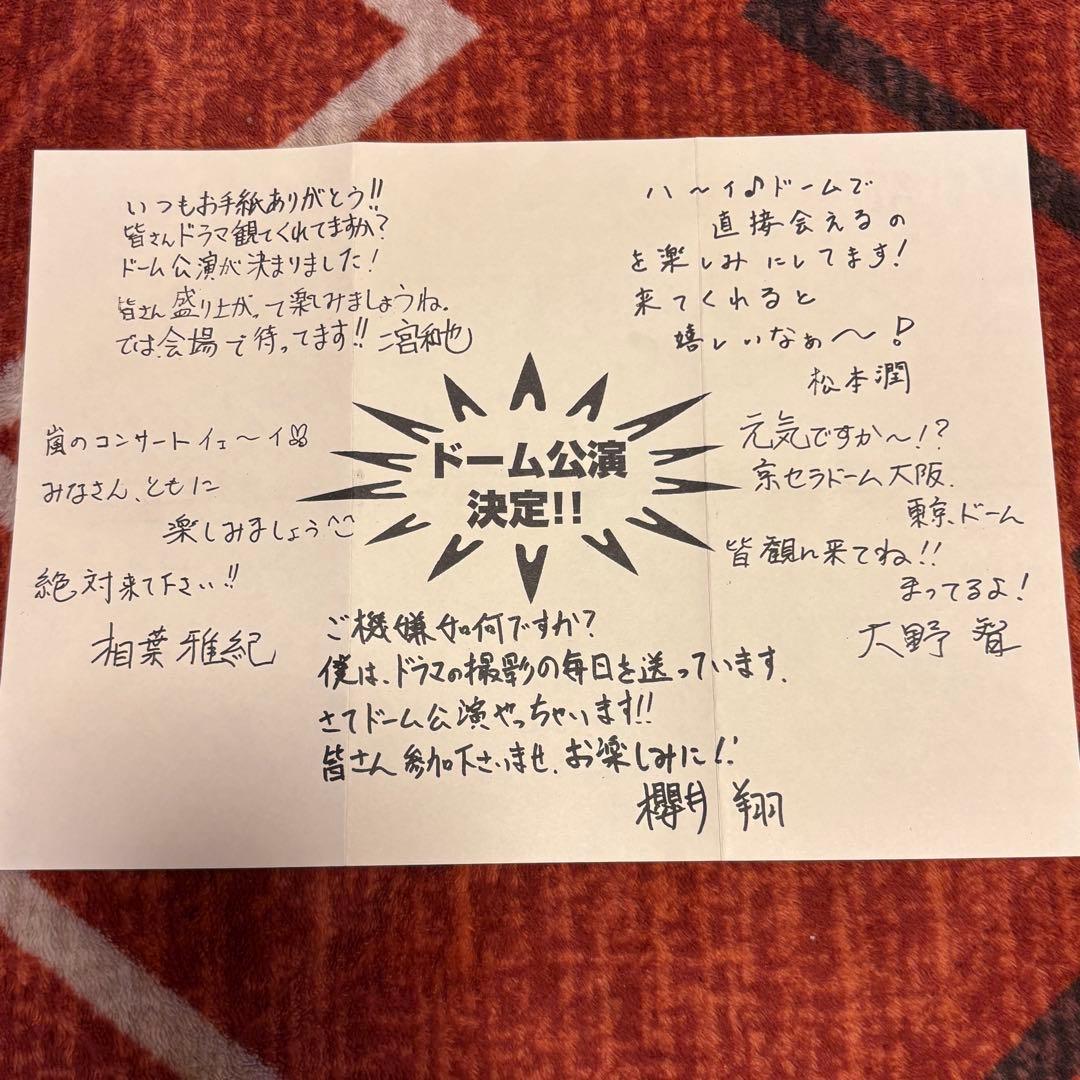 いつもお手紙ありがとう!!
皆さんドラマ観てくれてますか?
ドーム公演が決まりました!
皆さん盛り上がって楽しみましょうね.
では.会場で待ってます!! 二宮和也
ハ〜イ♪ドームで
直接会えるの
を楽しみにしてます!
来てくれると
嬉しいなぁ〜!
松本潤
嵐のコンサートイェ〜イ
みなさん、ともに
楽しみましょう^^
絶対来て下さい!!
相葉雅紀
ドーム公演
決定!!
元気ですか〜!?
京セラドーム大阪.
東京ドーム
皆観に来てね!!
まってるよ!
大野智
ご機嫌如何ですか?
僕は、ドラマの撮影の毎日を送っています.
さてドーム公演やっちゃいます!!
皆さん参加下さいませ.お楽しみに!!
櫻井翔